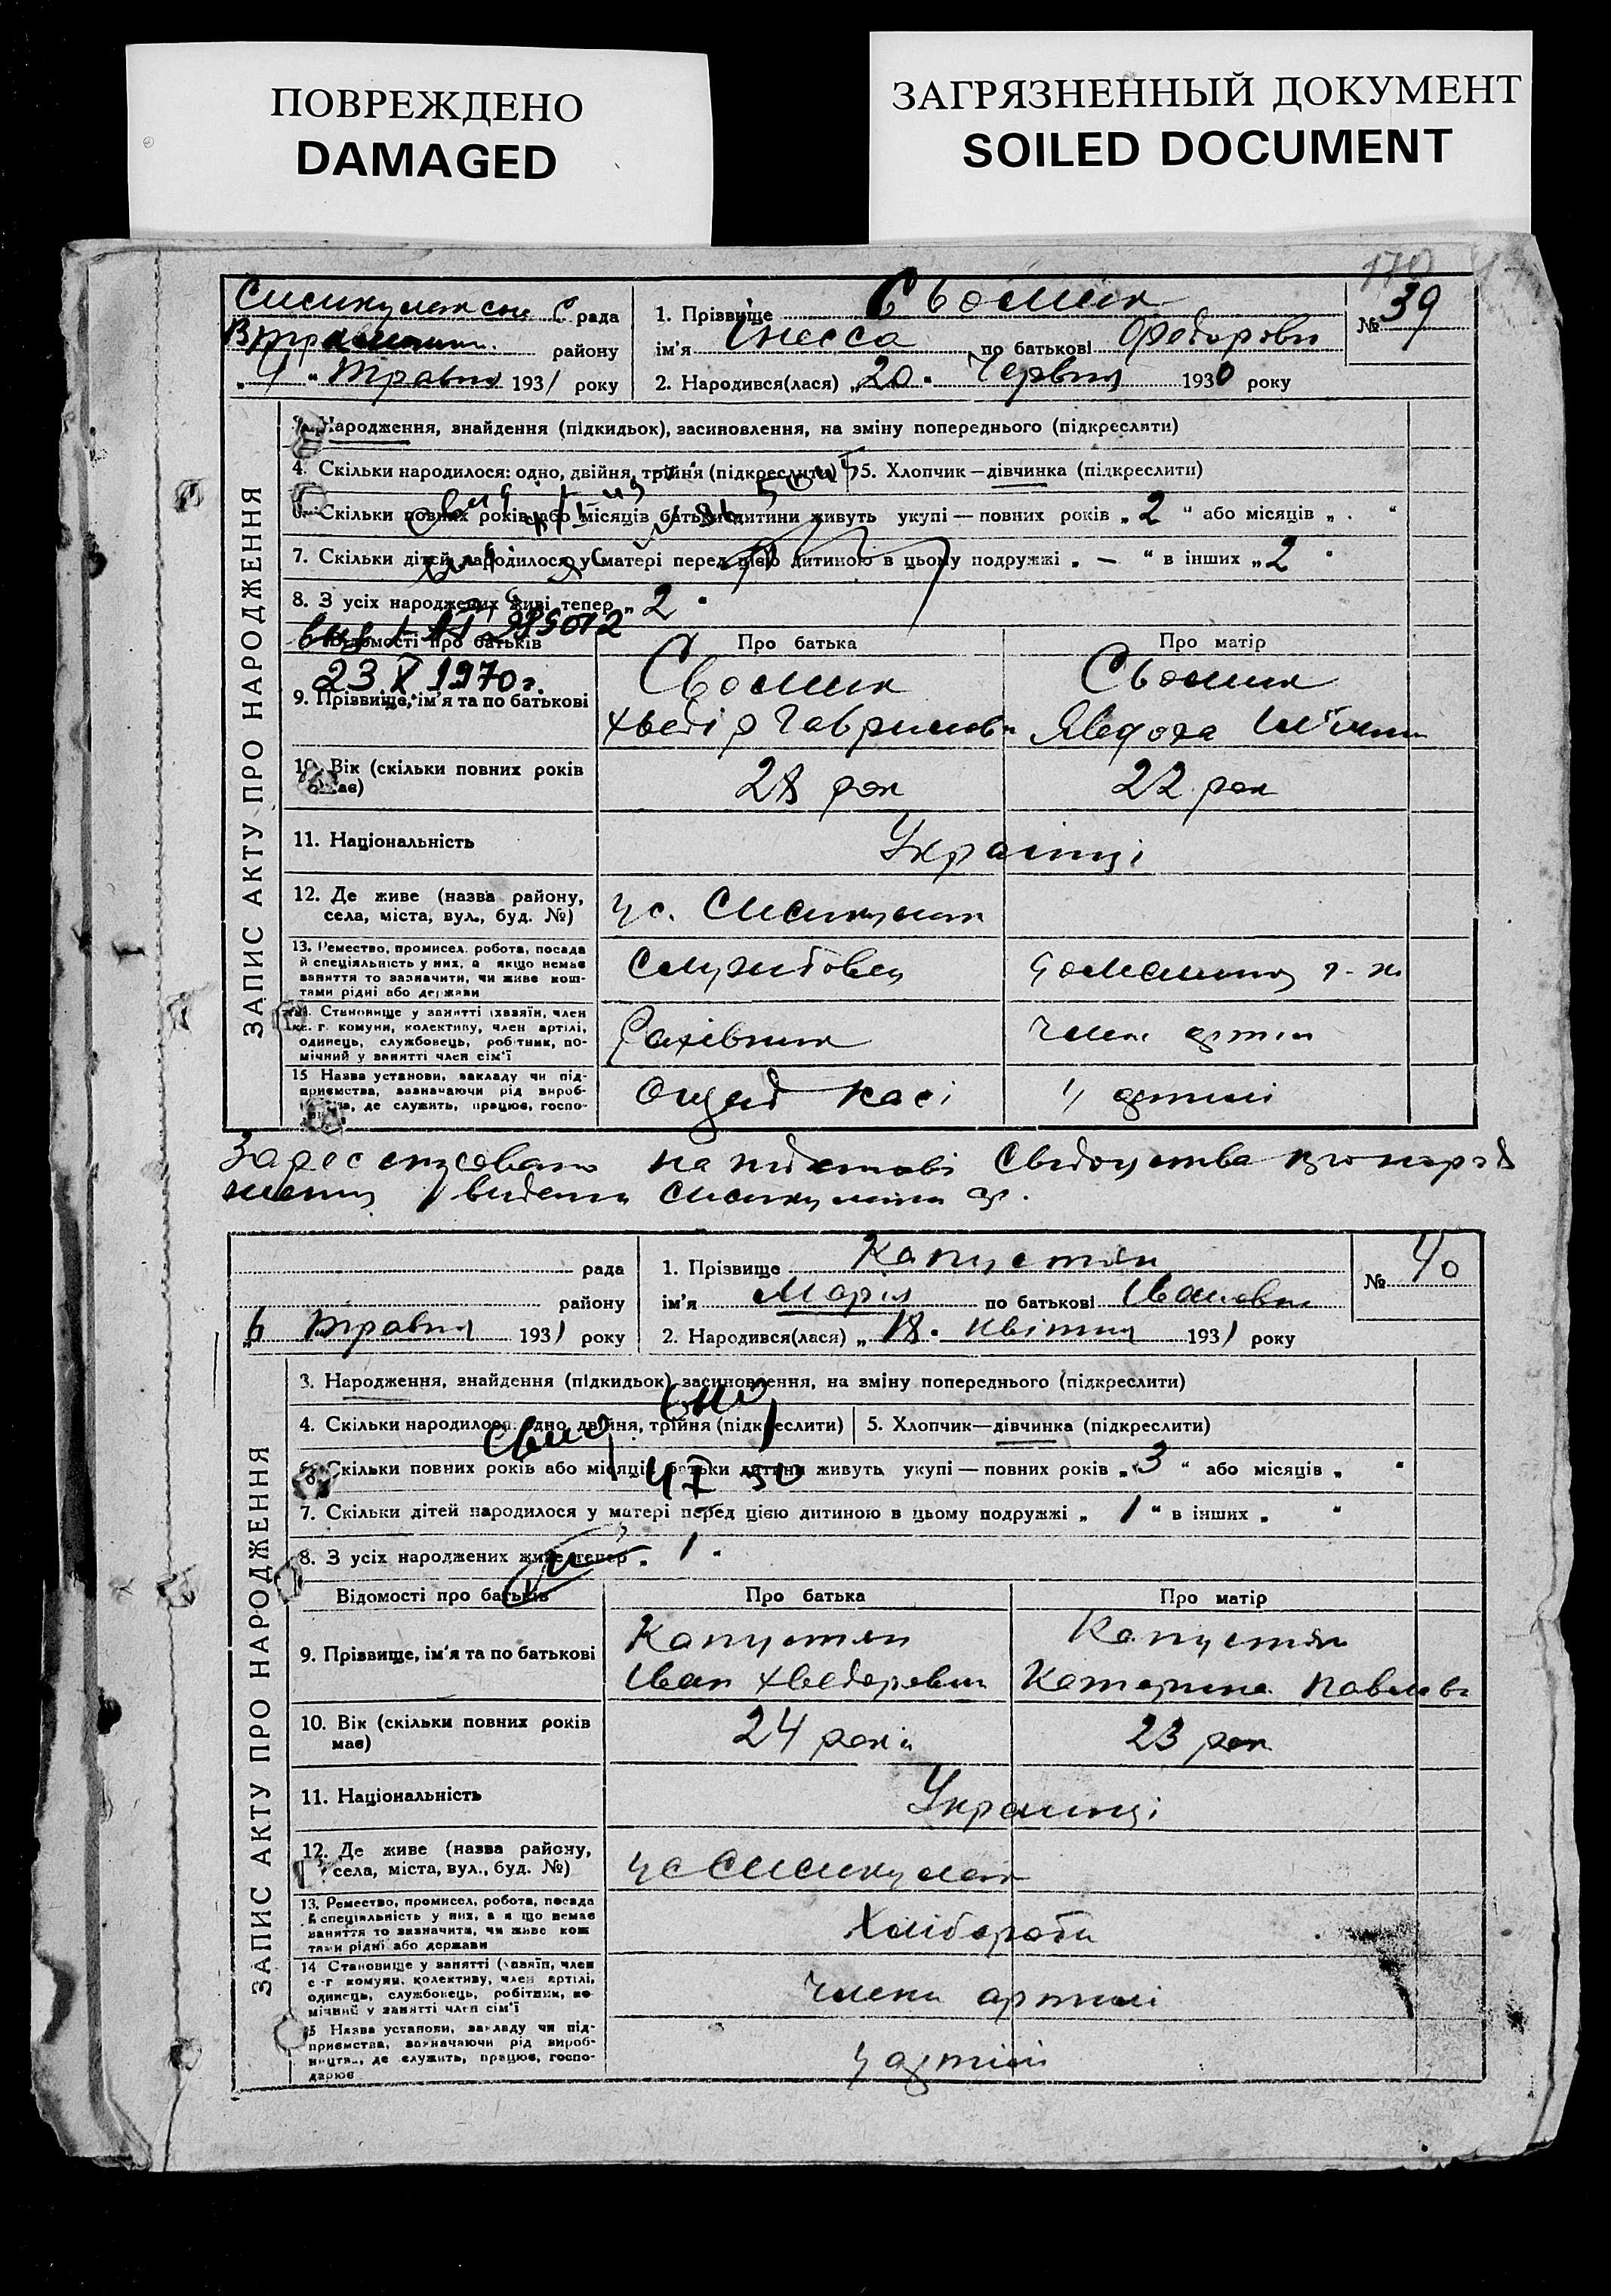 ПОВРЕЖДЕНО
DAMAGED
ЗАГРЯЗНЕННЫЙ ДОКУМЕНТ
SOILED DOCUMENT
170
рада
району
"4" Травня 1931 року
1. Прізвище Сьомик
ім'я Інесса по батькові Федоровн
2. Народився(лася) "20" Червня 1930 року
№ 39
ЗАПИС АКТУ ПРО НАРОДЖЕННЯ
3. Народження, знайдення (підкидьок), засиновлення, на зміну попереднього (підкреслити)
4. Скільки народилося: одно, двійня, трійня (підкреслити) 5. Хлопчик—дівчинка (підкреслити)
6. Скільки повних років або місяців батьки дитини живуть укупі — повних років "2" або місяців " . "
7. Скільки дітей народилося у матері перед цією дитиною в цьому подружжі " — " в інших "2"
8. З усіх народжених живі тепер "2"
385012
Відомості про батьків
Про батька
Про матір
23 X 1970 г.
9. Прізвище, ім'я та по батькові
Сьомик
Хведір Гаврилов
Сьомик
Явдоха
10. Вік (скільки повних років має)
28 рок
22 рок
11. Національність
Українці
12. Де живе (назва району, села, міста, вул., буд. №)
у с.
13. Ремество, промисел, робота, посада
й спеціяльність у них, а якщо немає
заняття то зазначити, чи живе кош-
тами рідні або держави
Службовец
домашня г-ка
14. Становище у занятті (хазяїн, член
с.-г. комуни, колективу, член артілі,
одинець, службовець, робітник, по-
мічний у занятті член сім'ї
Рахівник
Член артілі
15 Назва установи, закладу чи під-
приємства, зазначаючи рід вироб-
ництва, де служить, працює, госпо-
дарює
Ощад касі
у артілі
на підставі Свідоцтва про народ
ження видан
рада
району
"6" Травня 1931 року
1. Прізвище Капустян
ім'я Марія по батькові Івановна
2. Народився(лася) "18" квітня 1931 року
№ 40
ЗАПИС АКТУ ПРО НАРОДЖЕННЯ
3. Народження, знайдення (підкидьок) засиновлення, на зміну попереднього (підкреслити)
4. Скільки народилося: одно, двійня, трійня (підкреслити) 5. Хлопчик—дівчинка (підкреслити)
6. Скільки повних років або місяців батьки дитини живуть укупі — повних років "3" або місяців " "
7. Скільки дітей народилося у матері перед цією дитиною в цьому подружжі " 1 " в інших " "
8. З усіх народжених живе тепер " 1 "
Відомості про батьків
Про батька
Про матір
9. Прізвище, ім'я та по батькові
Капустян
Іван Хведорович
Капустян
Катерина Павлов
10. Вік (скільки повних років має)
24 роки
23 рок
11. Національність
Українці
12. Де живе (назва району, села, міста, вул., буд. №)
у с
13. Ремество, промисел, робота, посада
й спеціяльність у них, а якщо немає
заняття то зазначити, чи живе кош
тами рідні або держави
Хлібороби
14 Становище у занятті (хазяїн, член
с-г комуни, колективу, член артілі,
одинець, службовець, робітник, по
мічний у занятті член сім'ї
Члени артілі
15 Назва установи, закладу чи під-
приємства, зазначаючи рід вироб-
ництва, де служить, працює, госпо-
дарює
у артілі